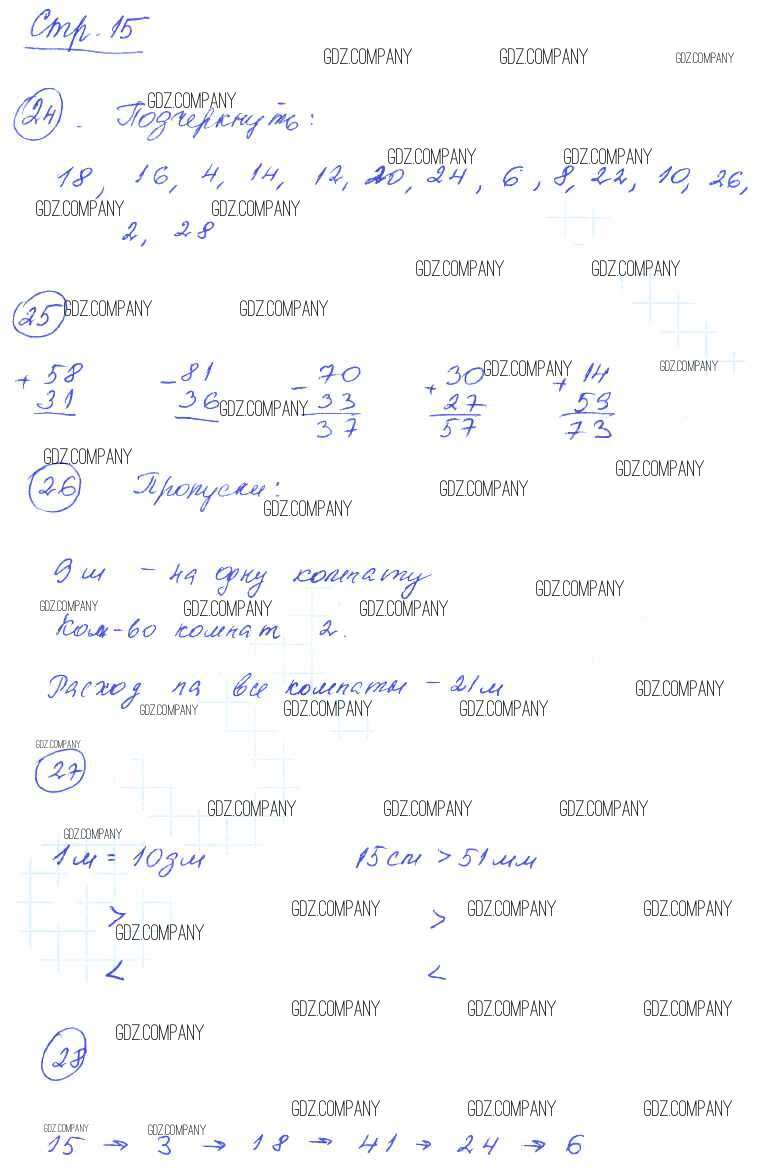 Стр. 15
GDZ.COMPANY GDZ.COMPANY GDZ.COMPANY
GDZ.COMPANY
24. Подчеркнуть:
GDZ.COMPANY GDZ.COMPANY
18, 16, 4, 14, 12, 20, 24, 6, 8, 22, 10, 26,
GDZ.COMPANY GDZ.COMPANY
2, 28
GDZ.COMPANY GDZ.COMPANY
25 GDZ.COMPANY GDZ.COMPANY
+ 58 - 81 - 70 + 30 GDZ.COMPANY + 14 GDZ.COMPANY
31 36 GDZ.COMPANY 33 27 59
37 57 73
GDZ.COMPANY GDZ.COMPANY
26 Пропуски: GDZ.COMPANY
GDZ.COMPANY
9 м - на одну комнату
GDZ.COMPANY
GDZ.COMPANY GDZ.COMPANY GDZ.COMPANY
Кол-во комнат 2.
Расход на все комнаты - 21 м GDZ.COMPANY
GDZ.COMPANY GDZ.COMPANY GDZ.COMPANY
GDZ.COMPANY
27
GDZ.COMPANY GDZ.COMPANY GDZ.COMPANY
GDZ.COMPANY
1 м = 10 дм 15 см > 51 мм
> GDZ.COMPANY > GDZ.COMPANY GDZ.COMPANY
GDZ.COMPANY
< <
GDZ.COMPANY GDZ.COMPANY GDZ.COMPANY
GDZ.COMPANY
28
GDZ.COMPANY GDZ.COMPANY GDZ.COMPANY
GDZ.COMPANY GDZ.COMPANY
15 → 3 → 18 → 41 → 24 → 6